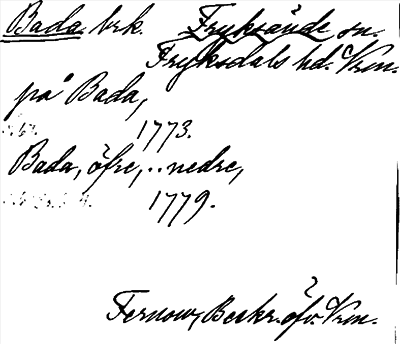 Bada brk. Fryksände sn.
Fryksdals hd. Vrm.
på Bada,
1773.
Bada, öfre, „ nedre,
1779.
Fernow, Beskr. öfv. Vrm.